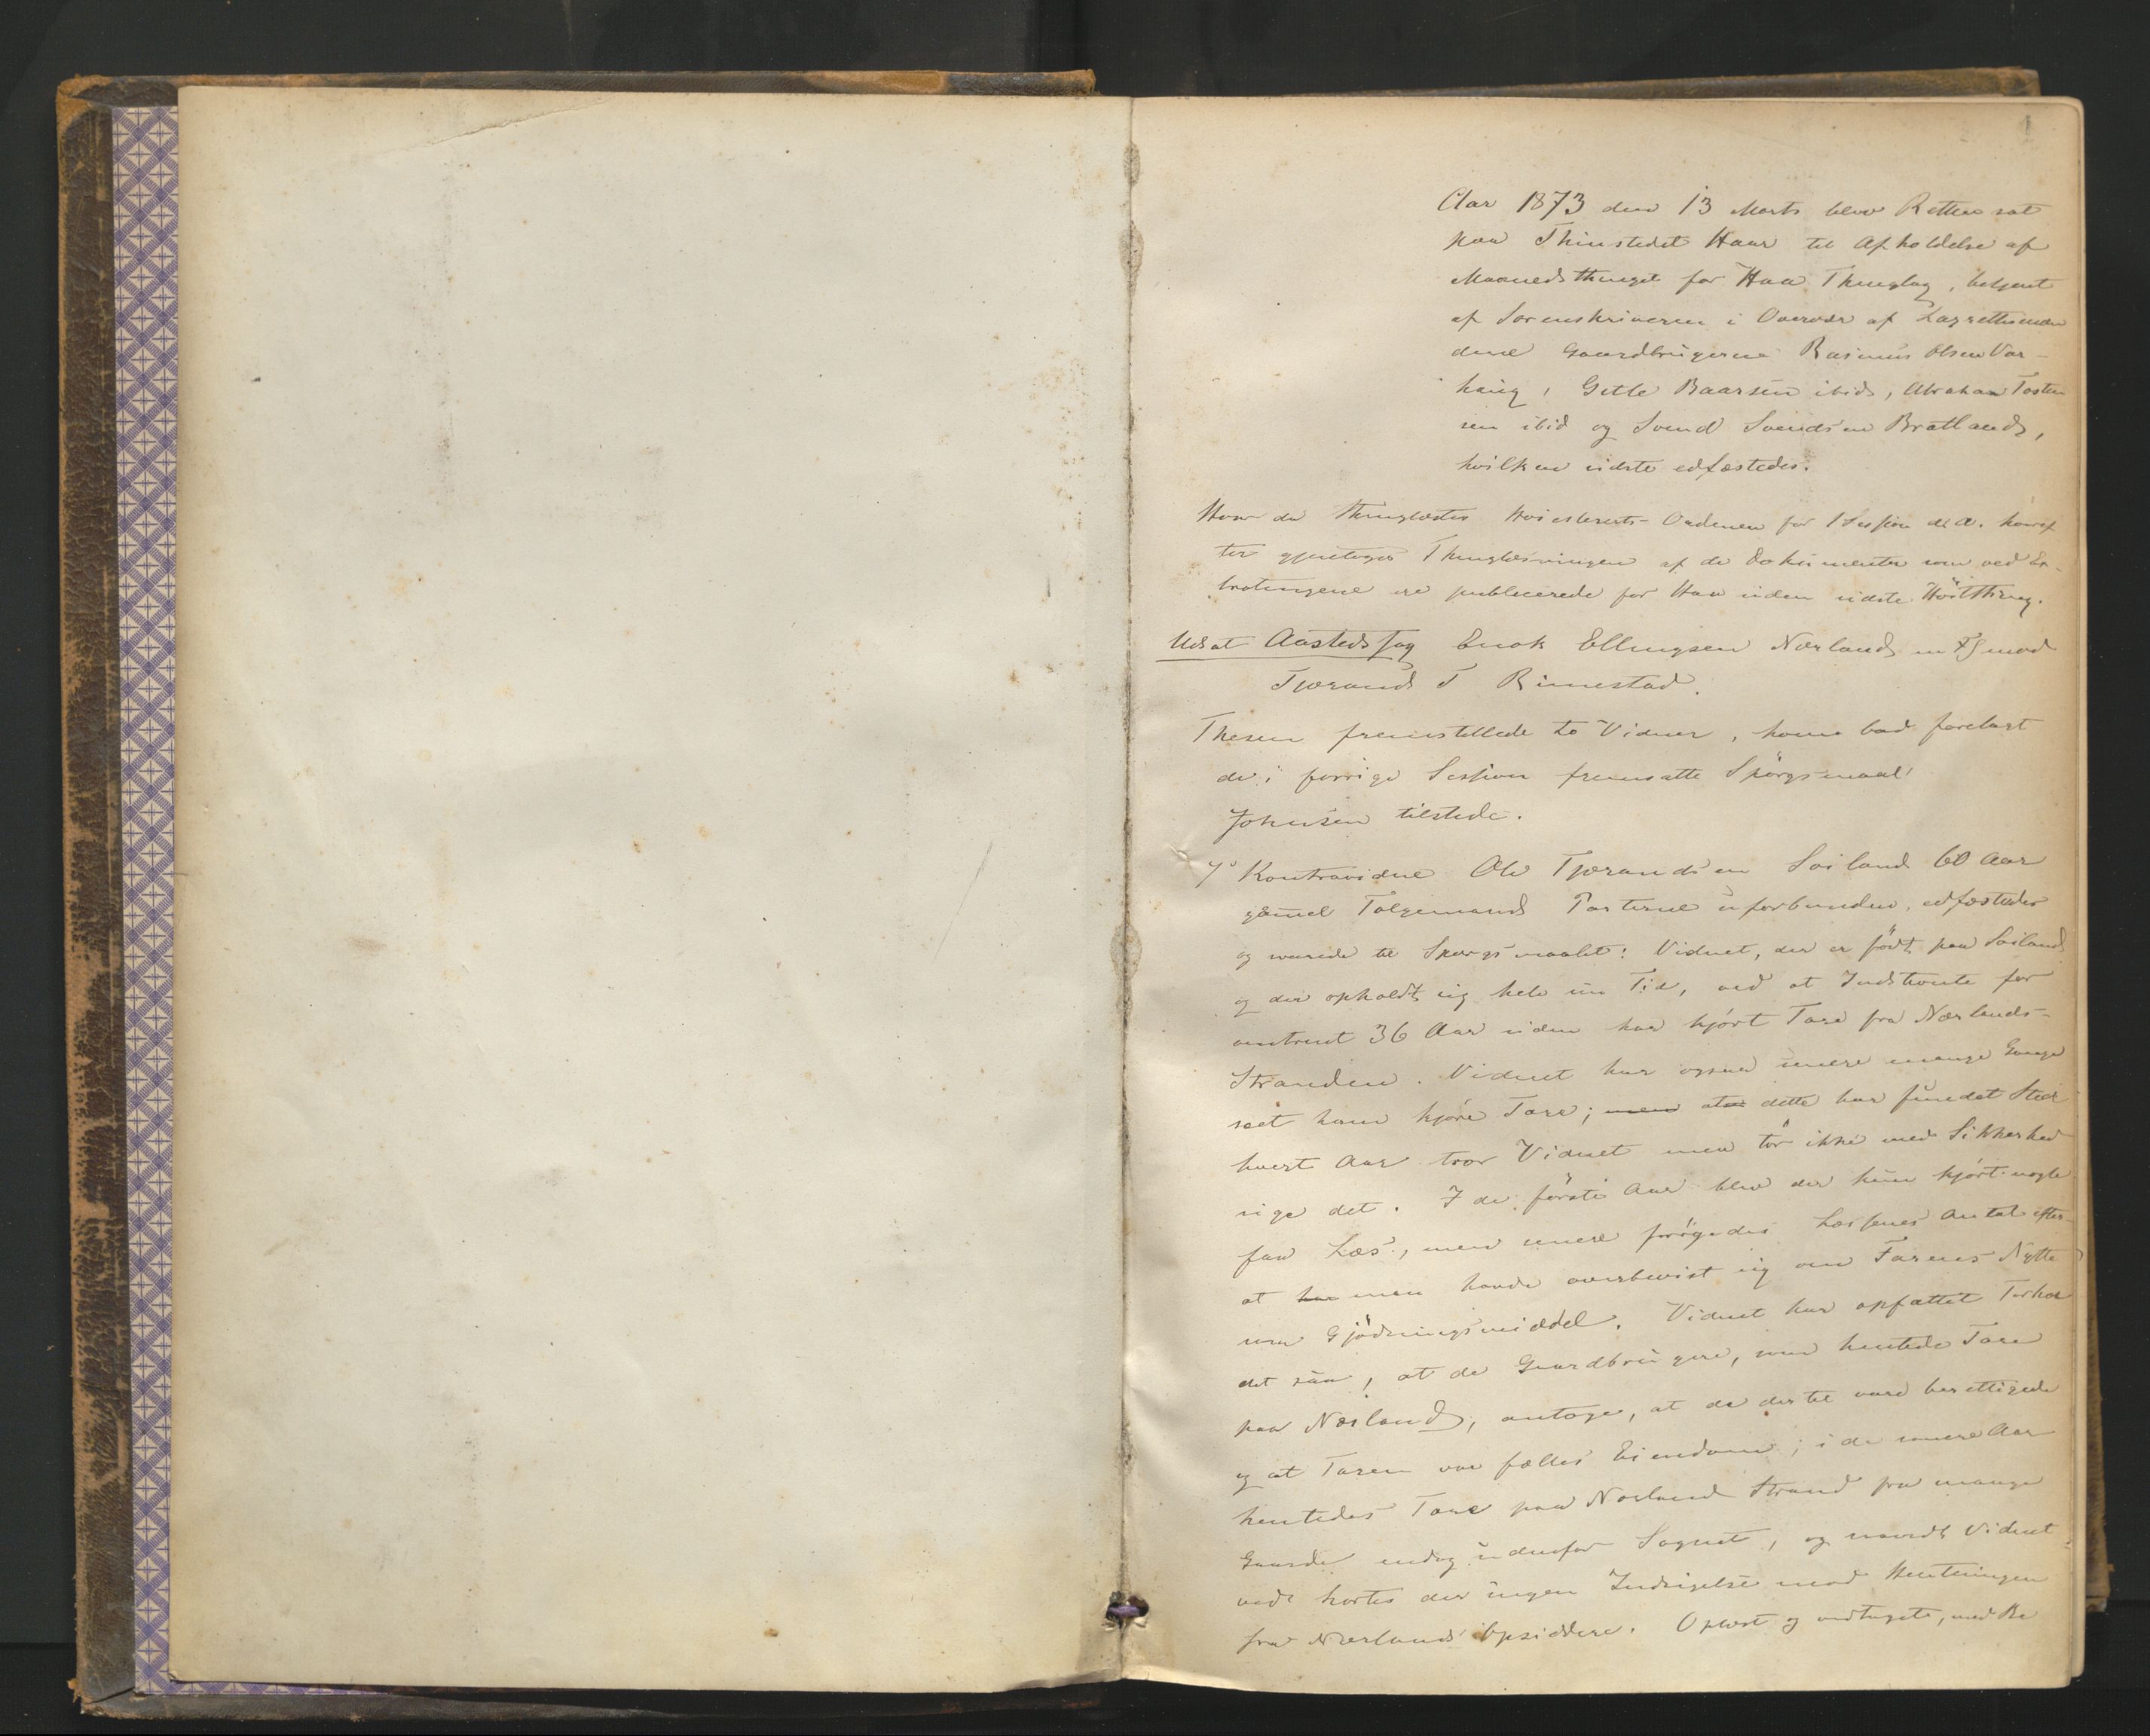 1
Aar 1873 den 13 Marts blev Retten sat
paa Thinstedet Haar til Afholdelse af
Maanedsthinget for Haa Thinglag, betjent
af Sorenskriveren i Overvær af Lagrettesmæn
dene Gaardbrugerne Rasmus Olsen Var-
haug, Gitle Baarsen ibid, Abraham Tosten
sen ibid og Svend Svendsen Bratland,
hvilken sidste edfæstedes.
Hvor da thinglæstes Høiesterets-Ordenen for 1 Session d. A. hvoref
ter gjentoges Thinglæsningen af de Dokumenter som ved Ex-
tratingene ere publicerede for Haa siden sidste Høstthing.
Udsat Aastedssag Enok Ellingsen Nærland m fl mod
Tjærand T Rimestad.
Thesen fremstillede to Vidner, hvem bad forelagt
de i forrige Session fremsatte Spørgsmaal.
Johnsen tilstede.
7de Kontravidne Ole Tjærandsen Soiland 60 Aar
gammel Følgemand Parterne uforbunden, edfæstedes
og svarede til Spørgsmaalet: Vidnet, der er født paa Soiland
og der opholdt sig hele sin Tid, ved at Indstevnte for
omtrent 36 Aar siden har kjørt Tare fra Nærlands-
Stranden. Vidnet har ogsaa senere mange Gange
seet ham kjøre Tare; men at dette har fundet Sted
hvert Aar tror Vidnet men tør ikke med Sikkerhed
sige det. I de første Aar blev der kun kjørt nogle
faa Læs, men senere forøgedes Læssenes Antal efter-
at har man havde overbevist sig om Tarens Nytte
som Gjødningsmiddel. Vidnet har opfattet Forhol
det saa, at de Gaardbrugere, som hentede Tare
paa Nærland, antoge, at de dertil vare berettigede
og at Taren var fælles Eiendom; i de senere Aar
hentedes Tare paa Nærland Strand fra mange
Gaarde endog udenfor Sognet, og saavidt Vidnet
ved hørtes der ingen Indsigelse mod Hentningen
fra Nærlands Opsiddere. Oplæst og vedtaget, med Be